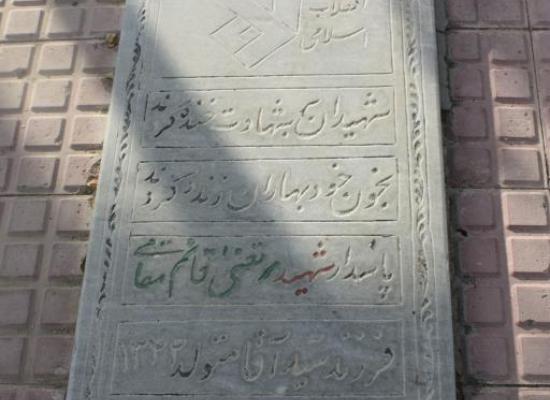 انقلاب
اسلامی
شهیدان بر شهادت خنده کردند
بخون خود بهاران زنده کردند
پاسدار شهید مرتضی قائم مقامی
فرزند سید آقا متولد ۱۳۴۳